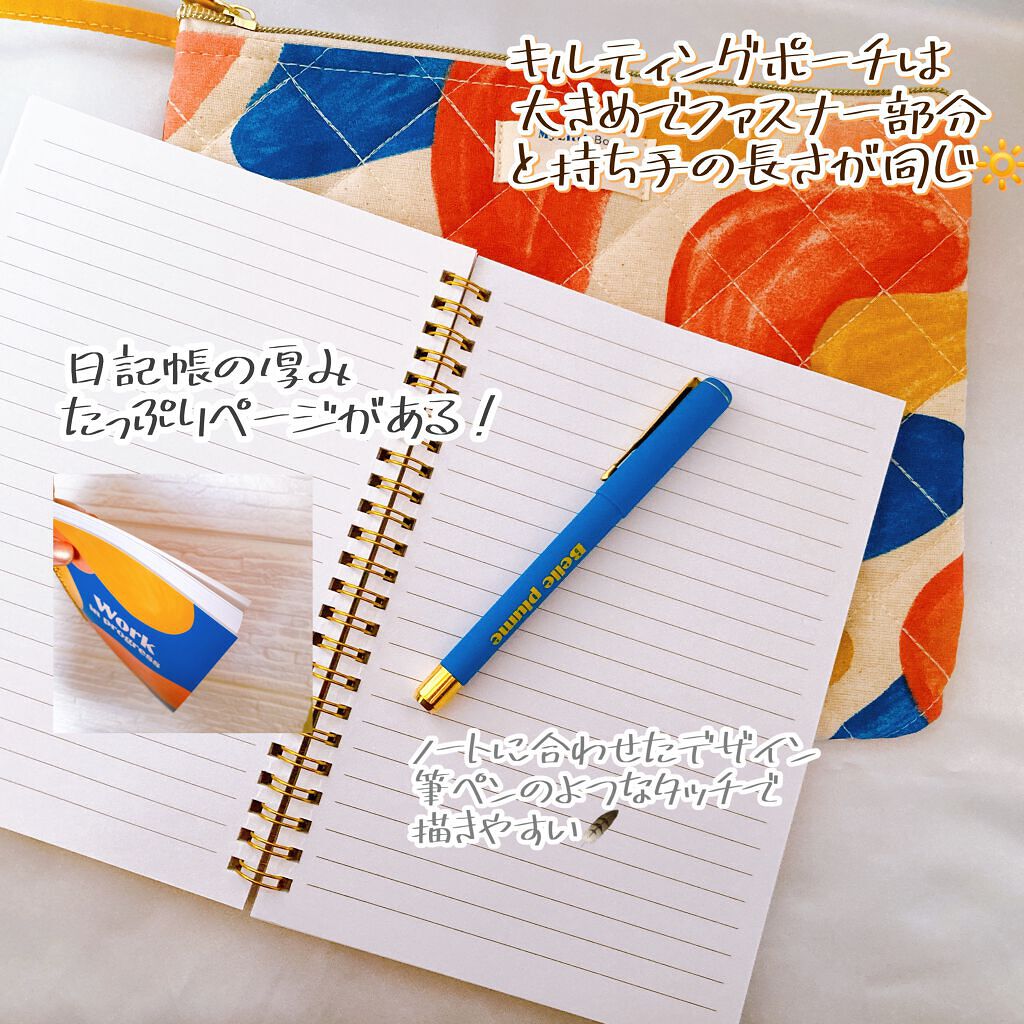 キルティングポーチは
大きめでファスナー部分
と持ち手の長さが同じ🔆
日記帳の厚み
たっぷりページがある！
Work
in progress
Belle plume
ノートに合わせたデザイン
筆ペンのようなタッチで
描きやすい🪶